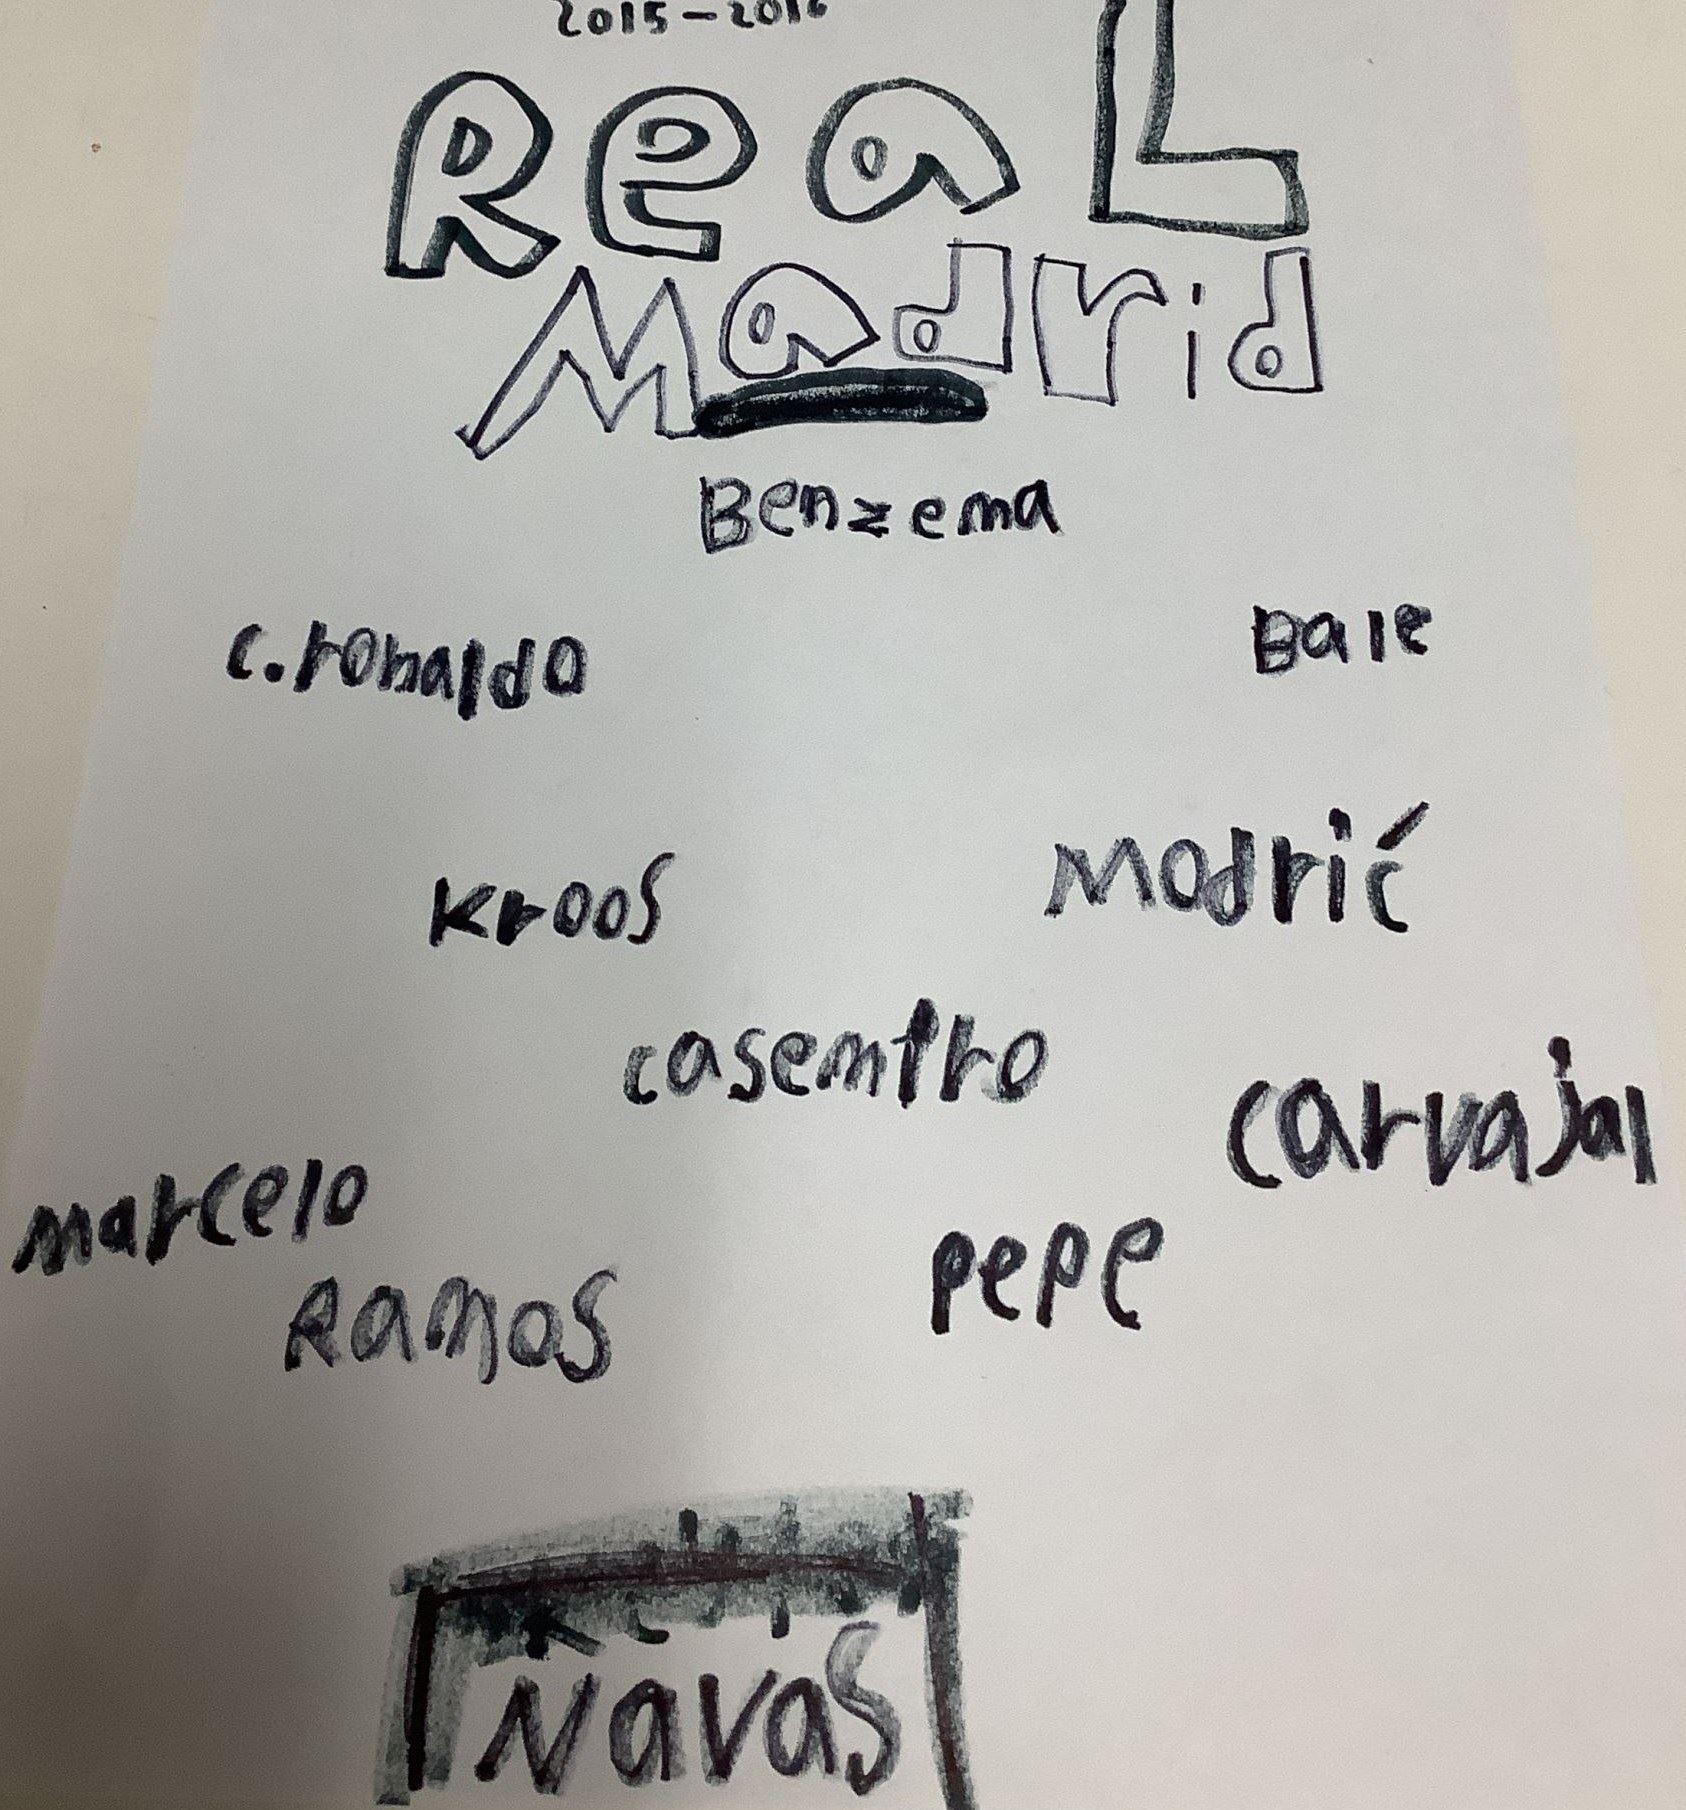 2015-2016
Real
Madrid
Benzema
c.ronaldo Bale
kroos Modrić
casemiro
carvajal
marcelo
pepe
Ramos
Navas